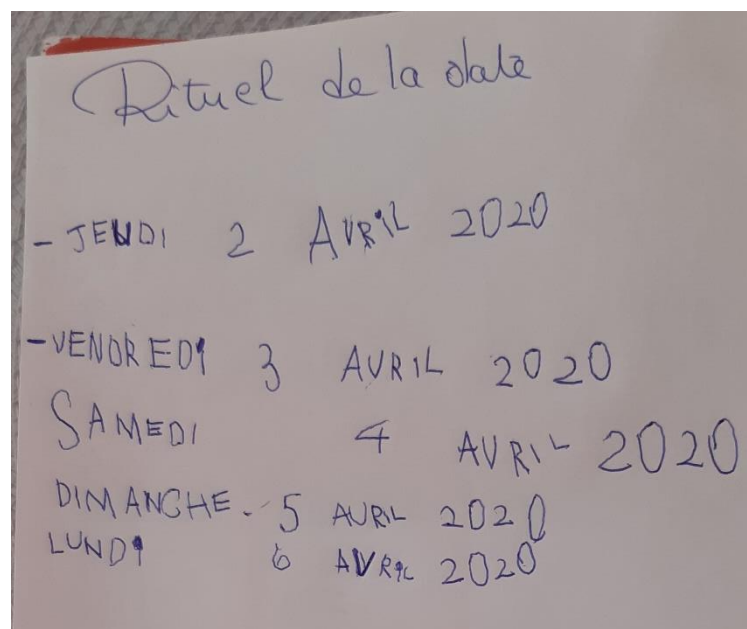 Rituel de la date
- JEUDI 2 AVRIL 2020
- VENDREDI 3 AVRIL 2020
SAMEDI 4 AVRIL 2020
DIMANCHE. 5 AVRIL 2020
LUNDI 6 AVRIL 2020